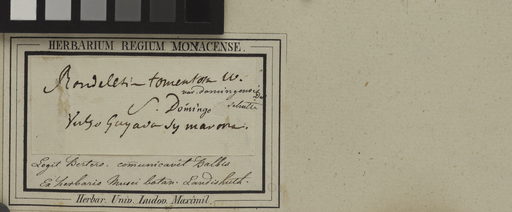 HERBARIUM REGIUM MONACENSE.
Rondeletia tomentosa W.
var. domingensis
S. Domingo
Vulgo Guyava Symarona.
Legit Bertero. communicavit Balbis
Ex herbario Musei botan. Landishuth.
Herbar. Univ. Ludov. Maximil.